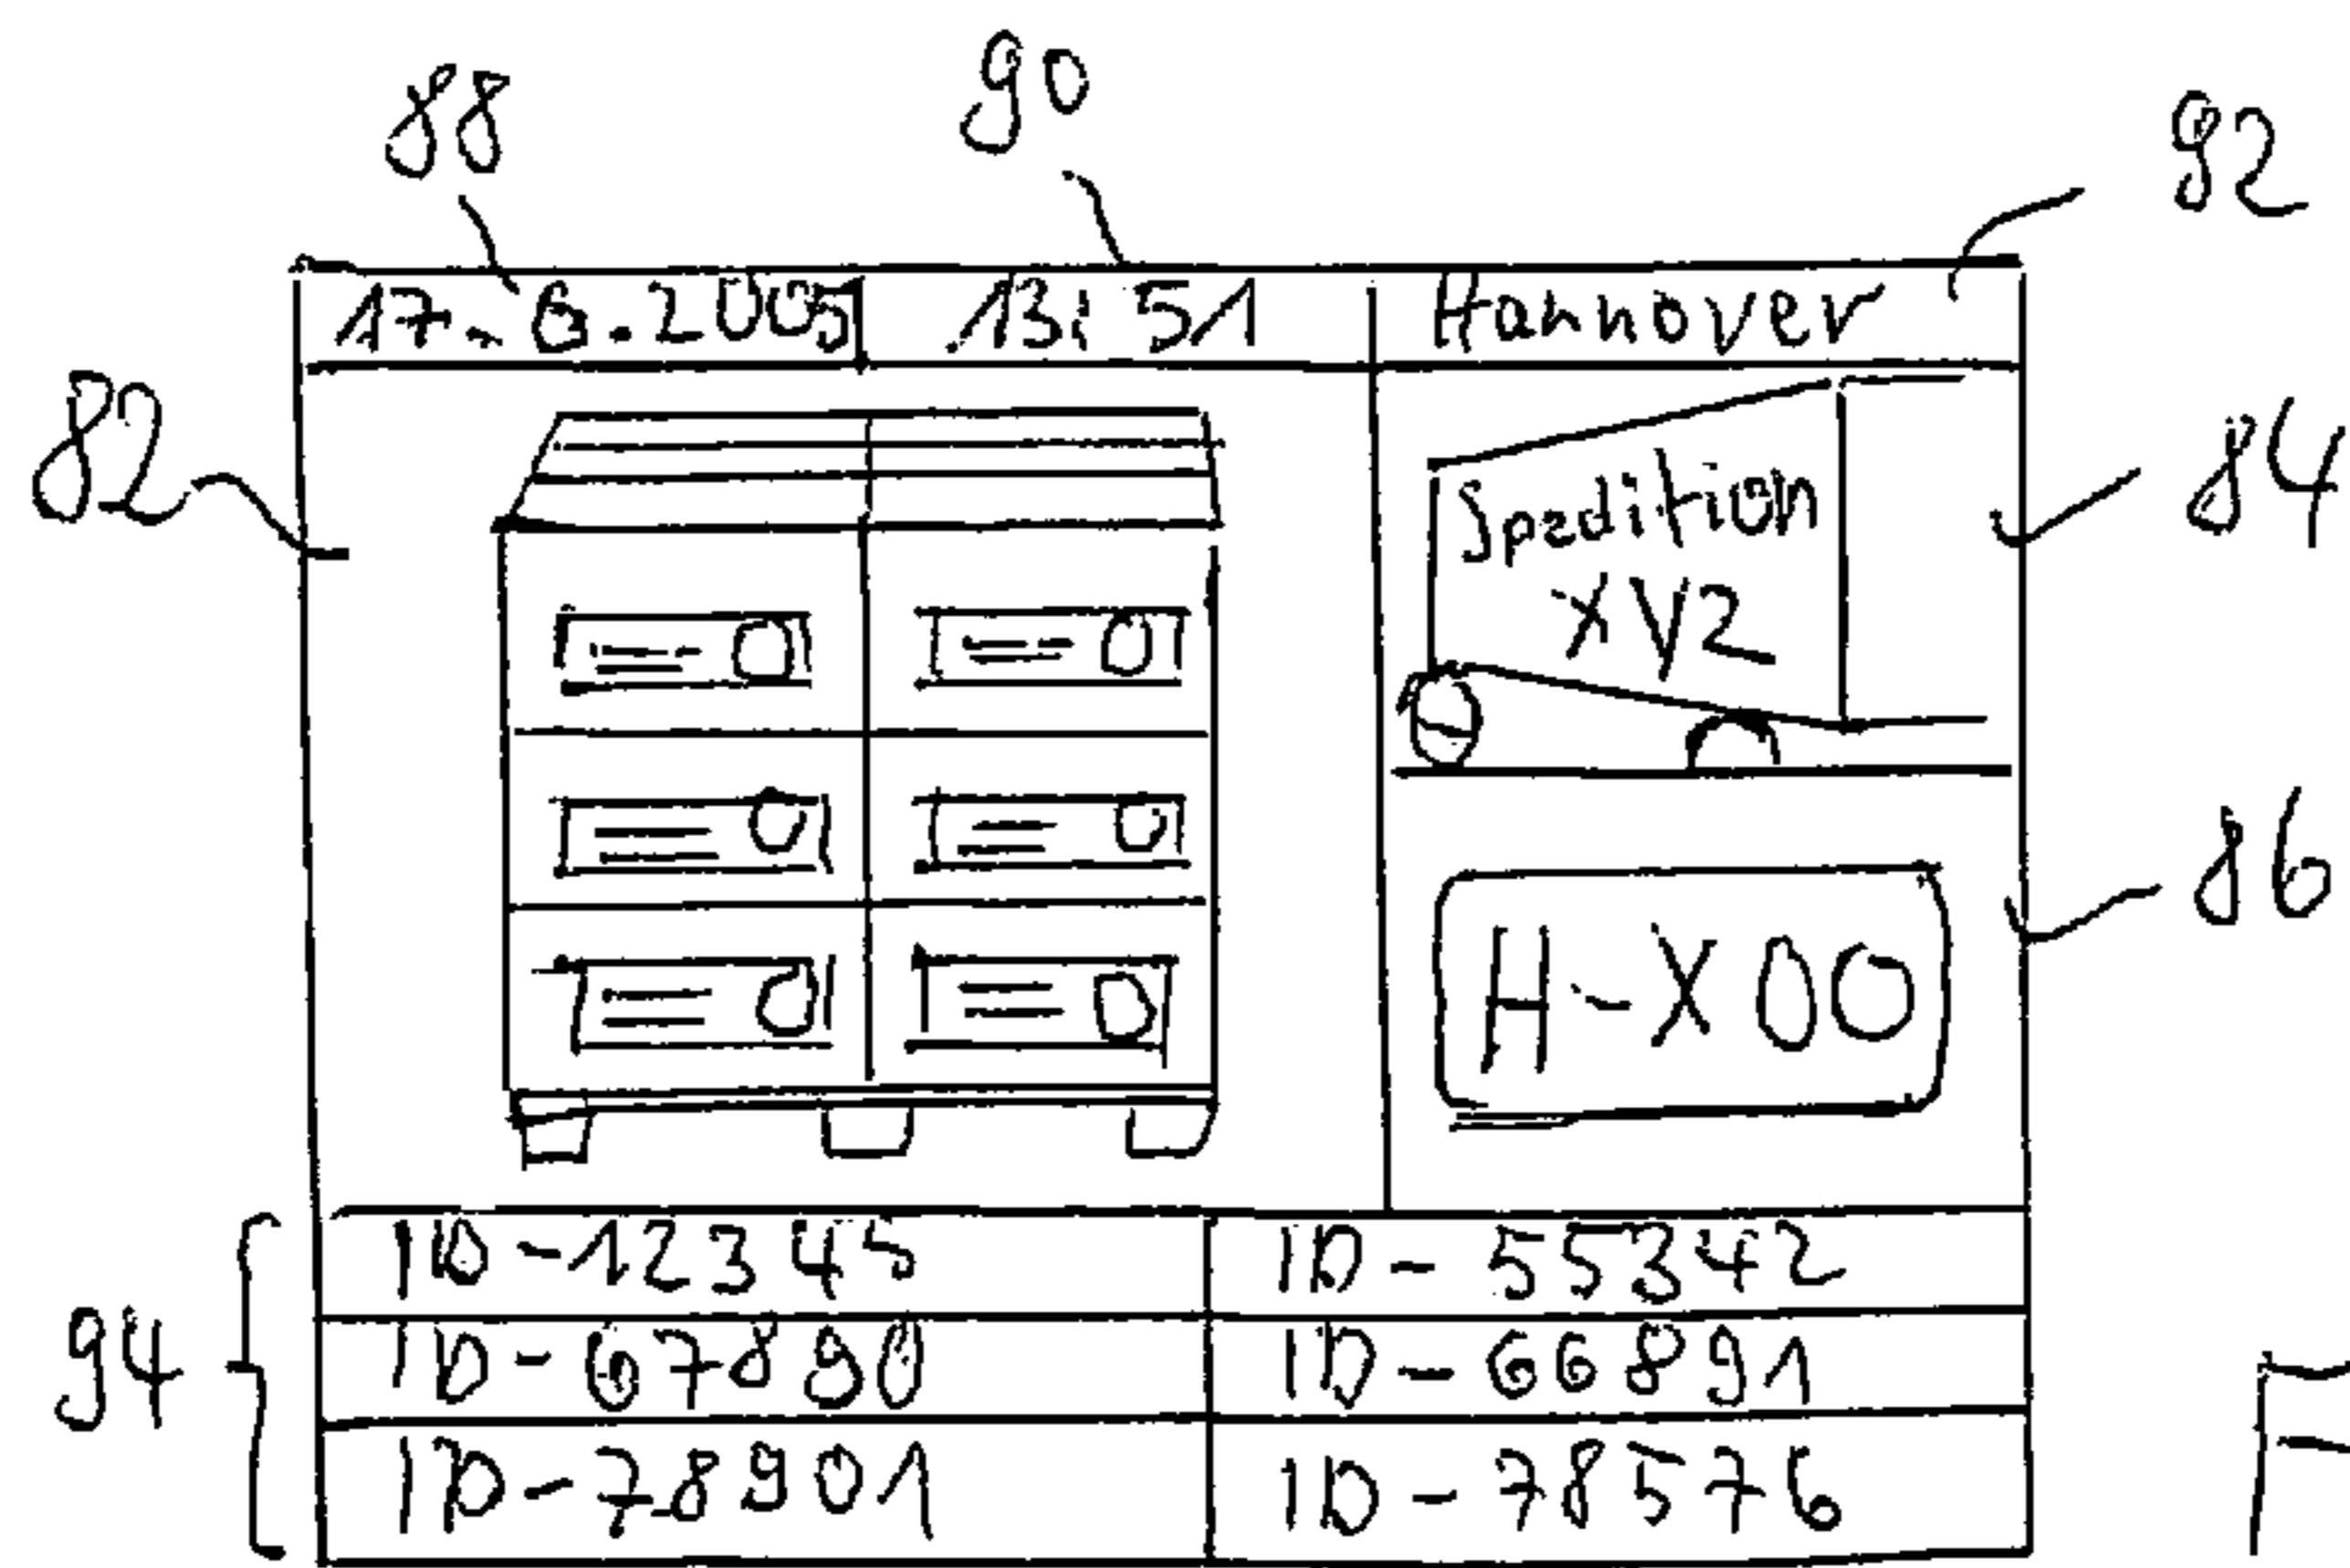 88 90 92
17. 6. 2005 13:51 Hannover
82 84
Spedition
XYZ
86
H-X00
94
ID-12345 ID-55342
ID-67890 ID-66891
ID-78901 ID-78576